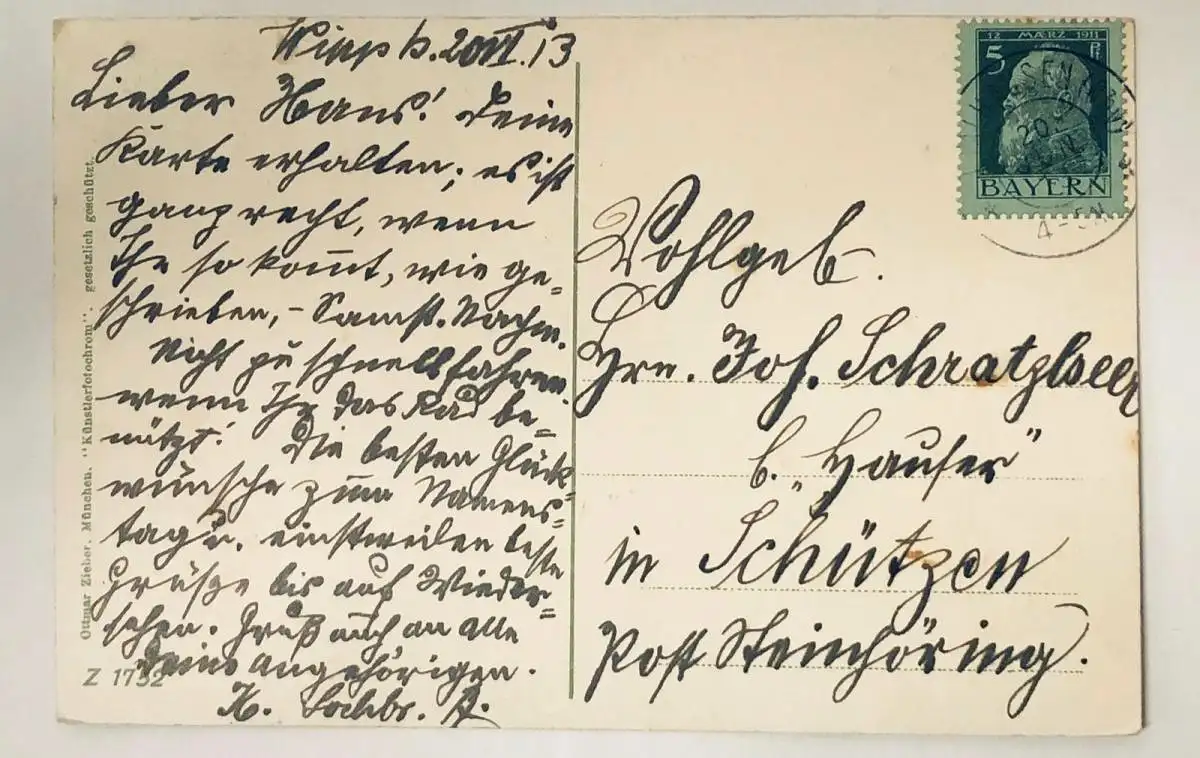 20.VI.13
Lieber Hans! Deine
Karte erhalten; es ist
ganz recht, wenn
Ihr so kom̄t, wie ge=
schrieben, – Samst. Nachm.
Nicht zu schnell fahren,
wenn Ihr das Rad be=
nützt! Die besten Glück=
wünsche zum Namens=
tag u. einstweilen beste
Grüße bis auf Wieder=
sehen. Gruß auch an alle
Deine Angehörigen.
Ottmar Zieher, München. "Künstlerfotochrom". gesetzlich geschützt.
Z 1752
12 MÄRZ 1911
5 Pf
BAYERN
20.
Wohlgeb.
Hrn. Joh. Schratzlseer
b. „Hauser"
in Schützen
Post Steinhöring.